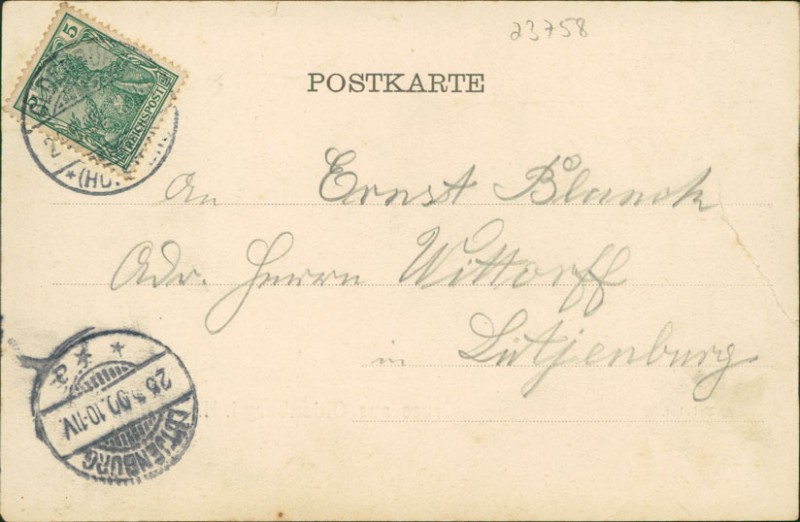 23758
5
REICHSPOST
POSTKARTE
An Ernst Blanck
Adr. Herrn Wittorff
in Lütjenburg.
LÜTJENBURG